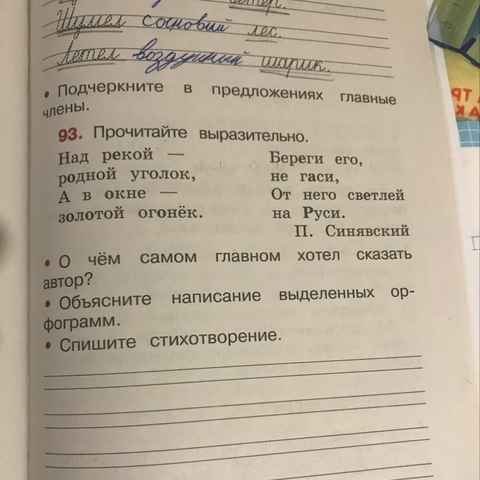 Шумел сосновый лес.
Летел воздушный шарик.
• Подчеркните в предложениях главные
члены.
93. Прочитайте выразительно.
Над рекой —
родной уголок,
А в окне —
золотой огонёк.
Береги его,
не гаси,
От него светлей
на Руси.
П. Синявский
• О чём самом главном хотел сказать
автор?
• Объясните написание выделенных ор-
фограмм.
• Спишите стихотворение.